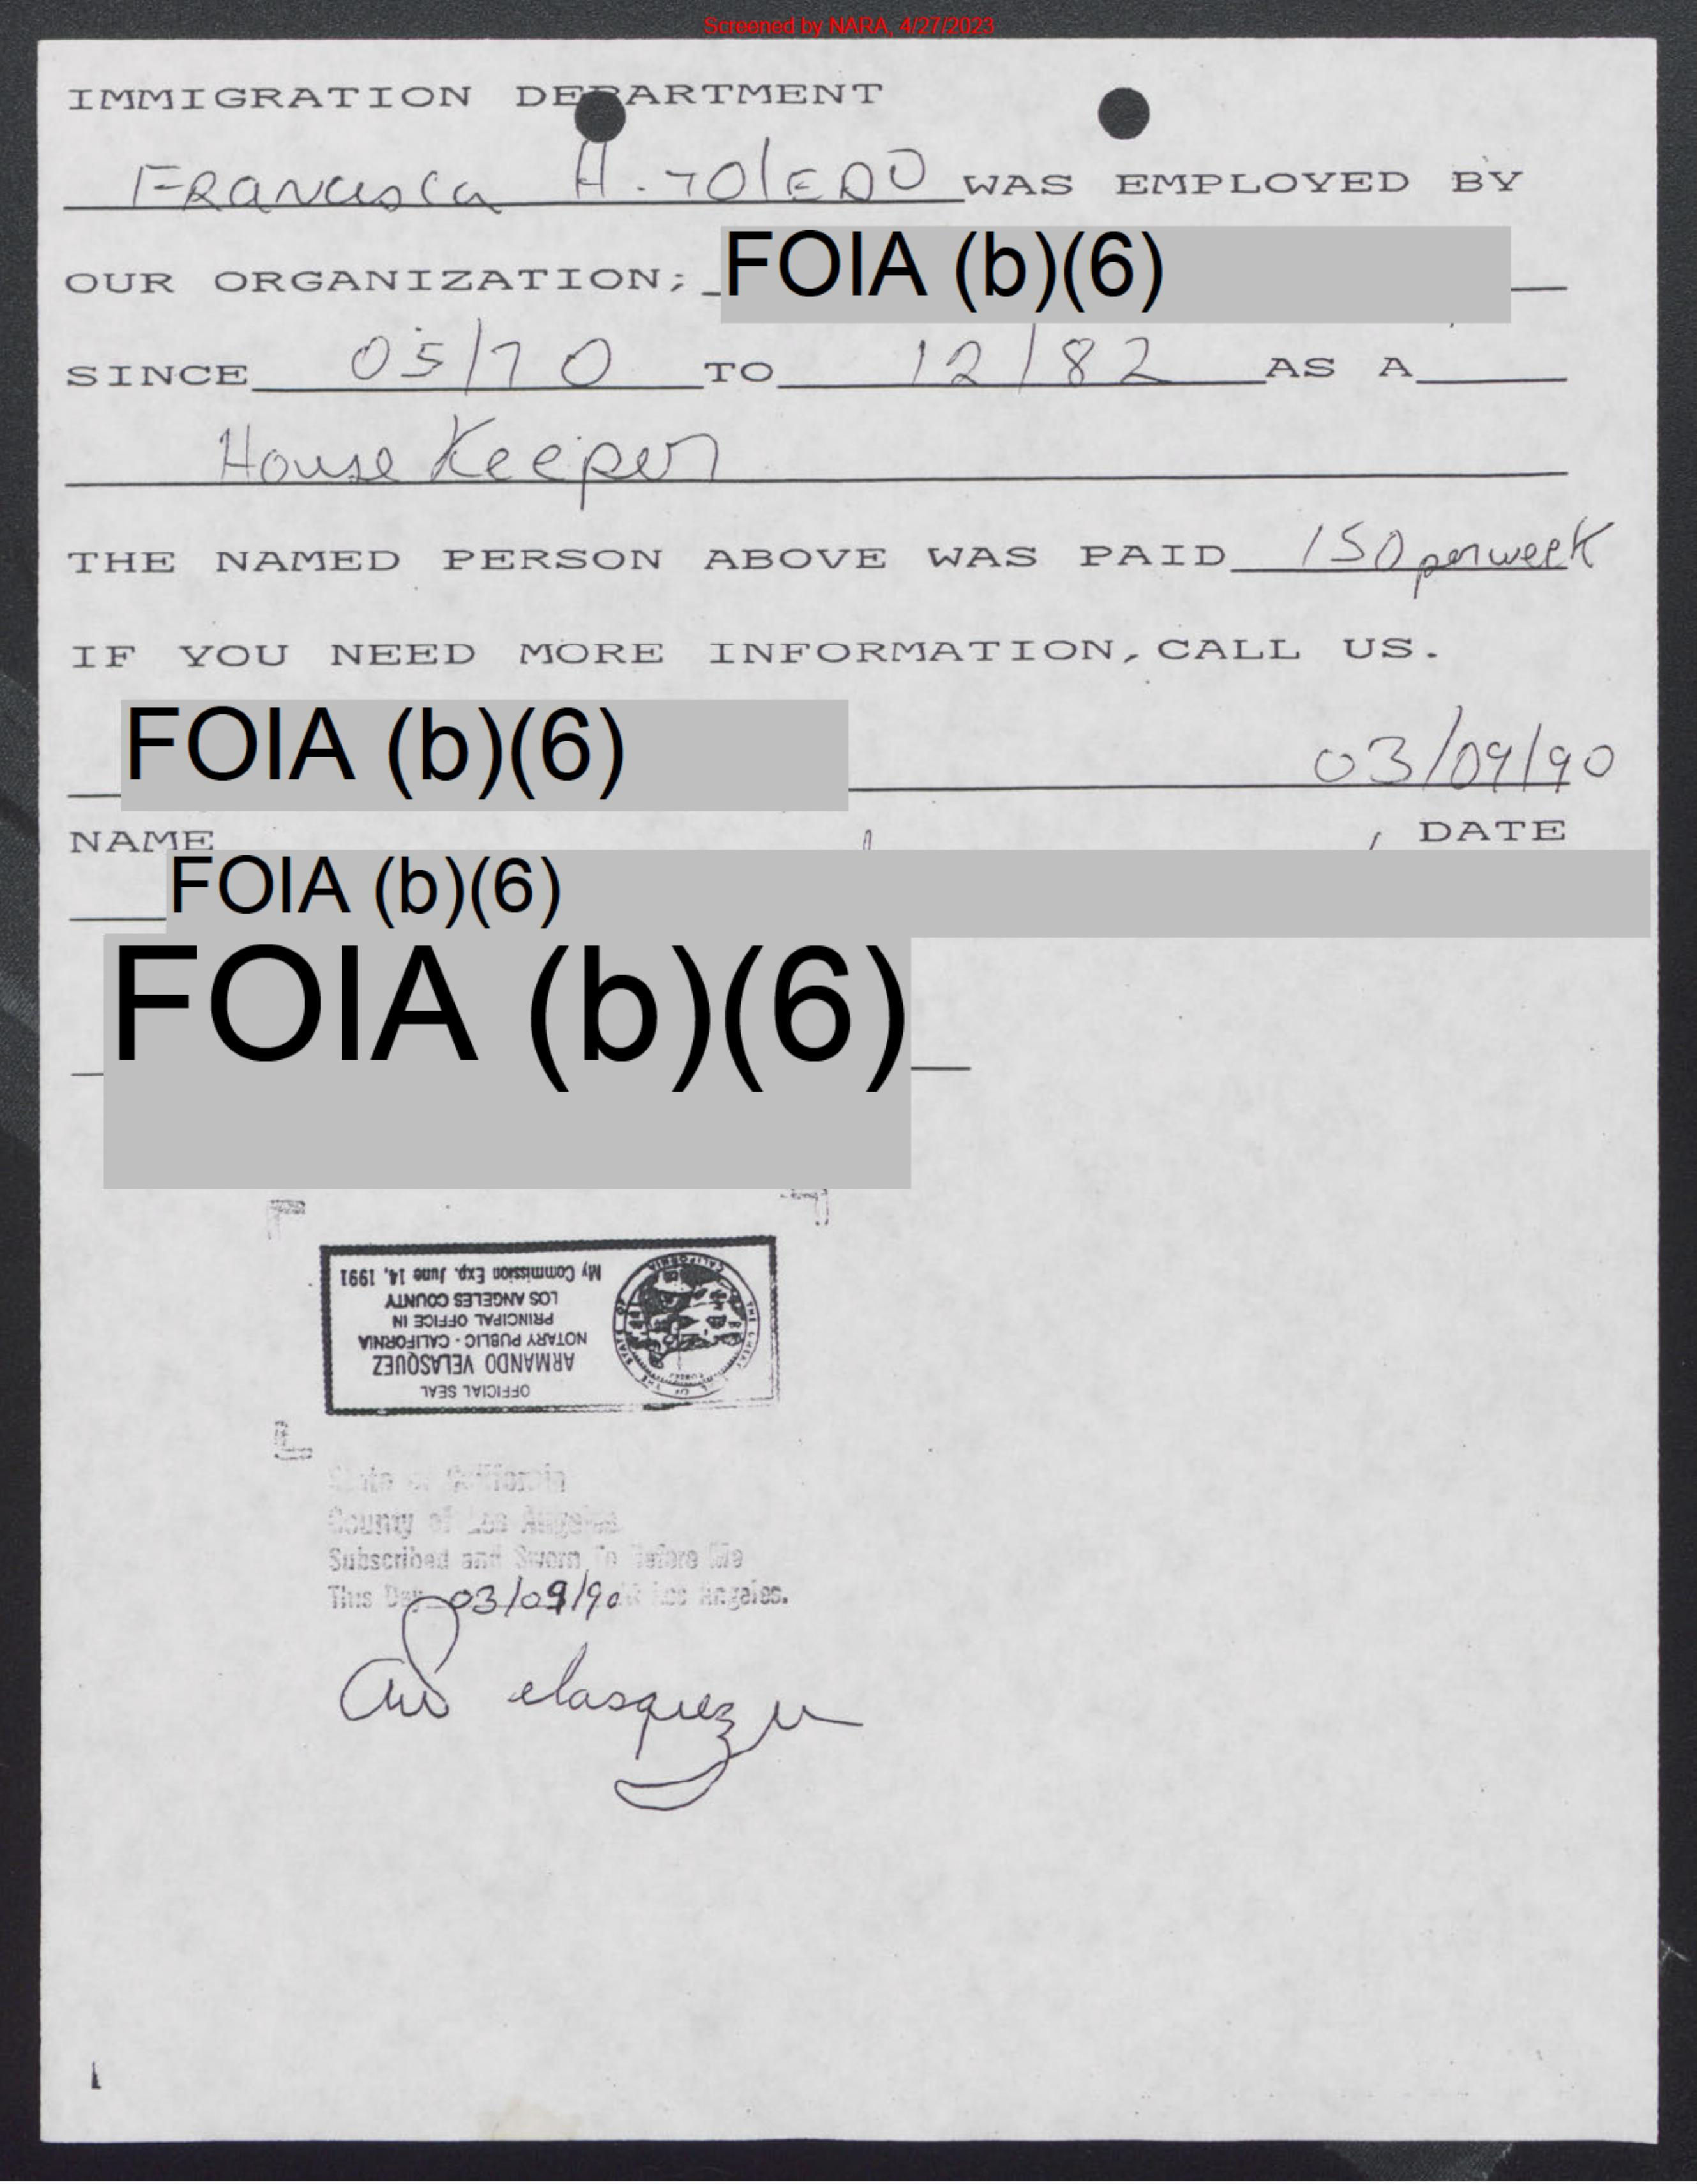 Screened by NARA, 4/27/2023
IMMIGRATION DEPARTMENT
Francisca H. TOLEDO WAS EMPLOYED BY
OUR ORGANIZATION; FOIA (b)(6)
SINCE 05/70 TO 12/82 AS A
House Keeper
THE NAMED PERSON ABOVE WAS PAID 150 per week
IF YOU NEED MORE INFORMATION, CALL US.
FOIA (b)(6) 03/09/90
NAME DATE
FOIA (b)(6)
FOIA (b)(6)
OFFICIAL SEAL
ARMANDO VELASQUEZ
NOTARY PUBLIC - CALIFORNIA
PRINCIPAL OFFICE IN
LOS ANGELES COUNTY
My Commission Exp. June 14, 1991
State of California
County of Los Angeles
Subscribed and Sworn To Before Me
This Day 03/09/90 Los Angeles.
Velasquez